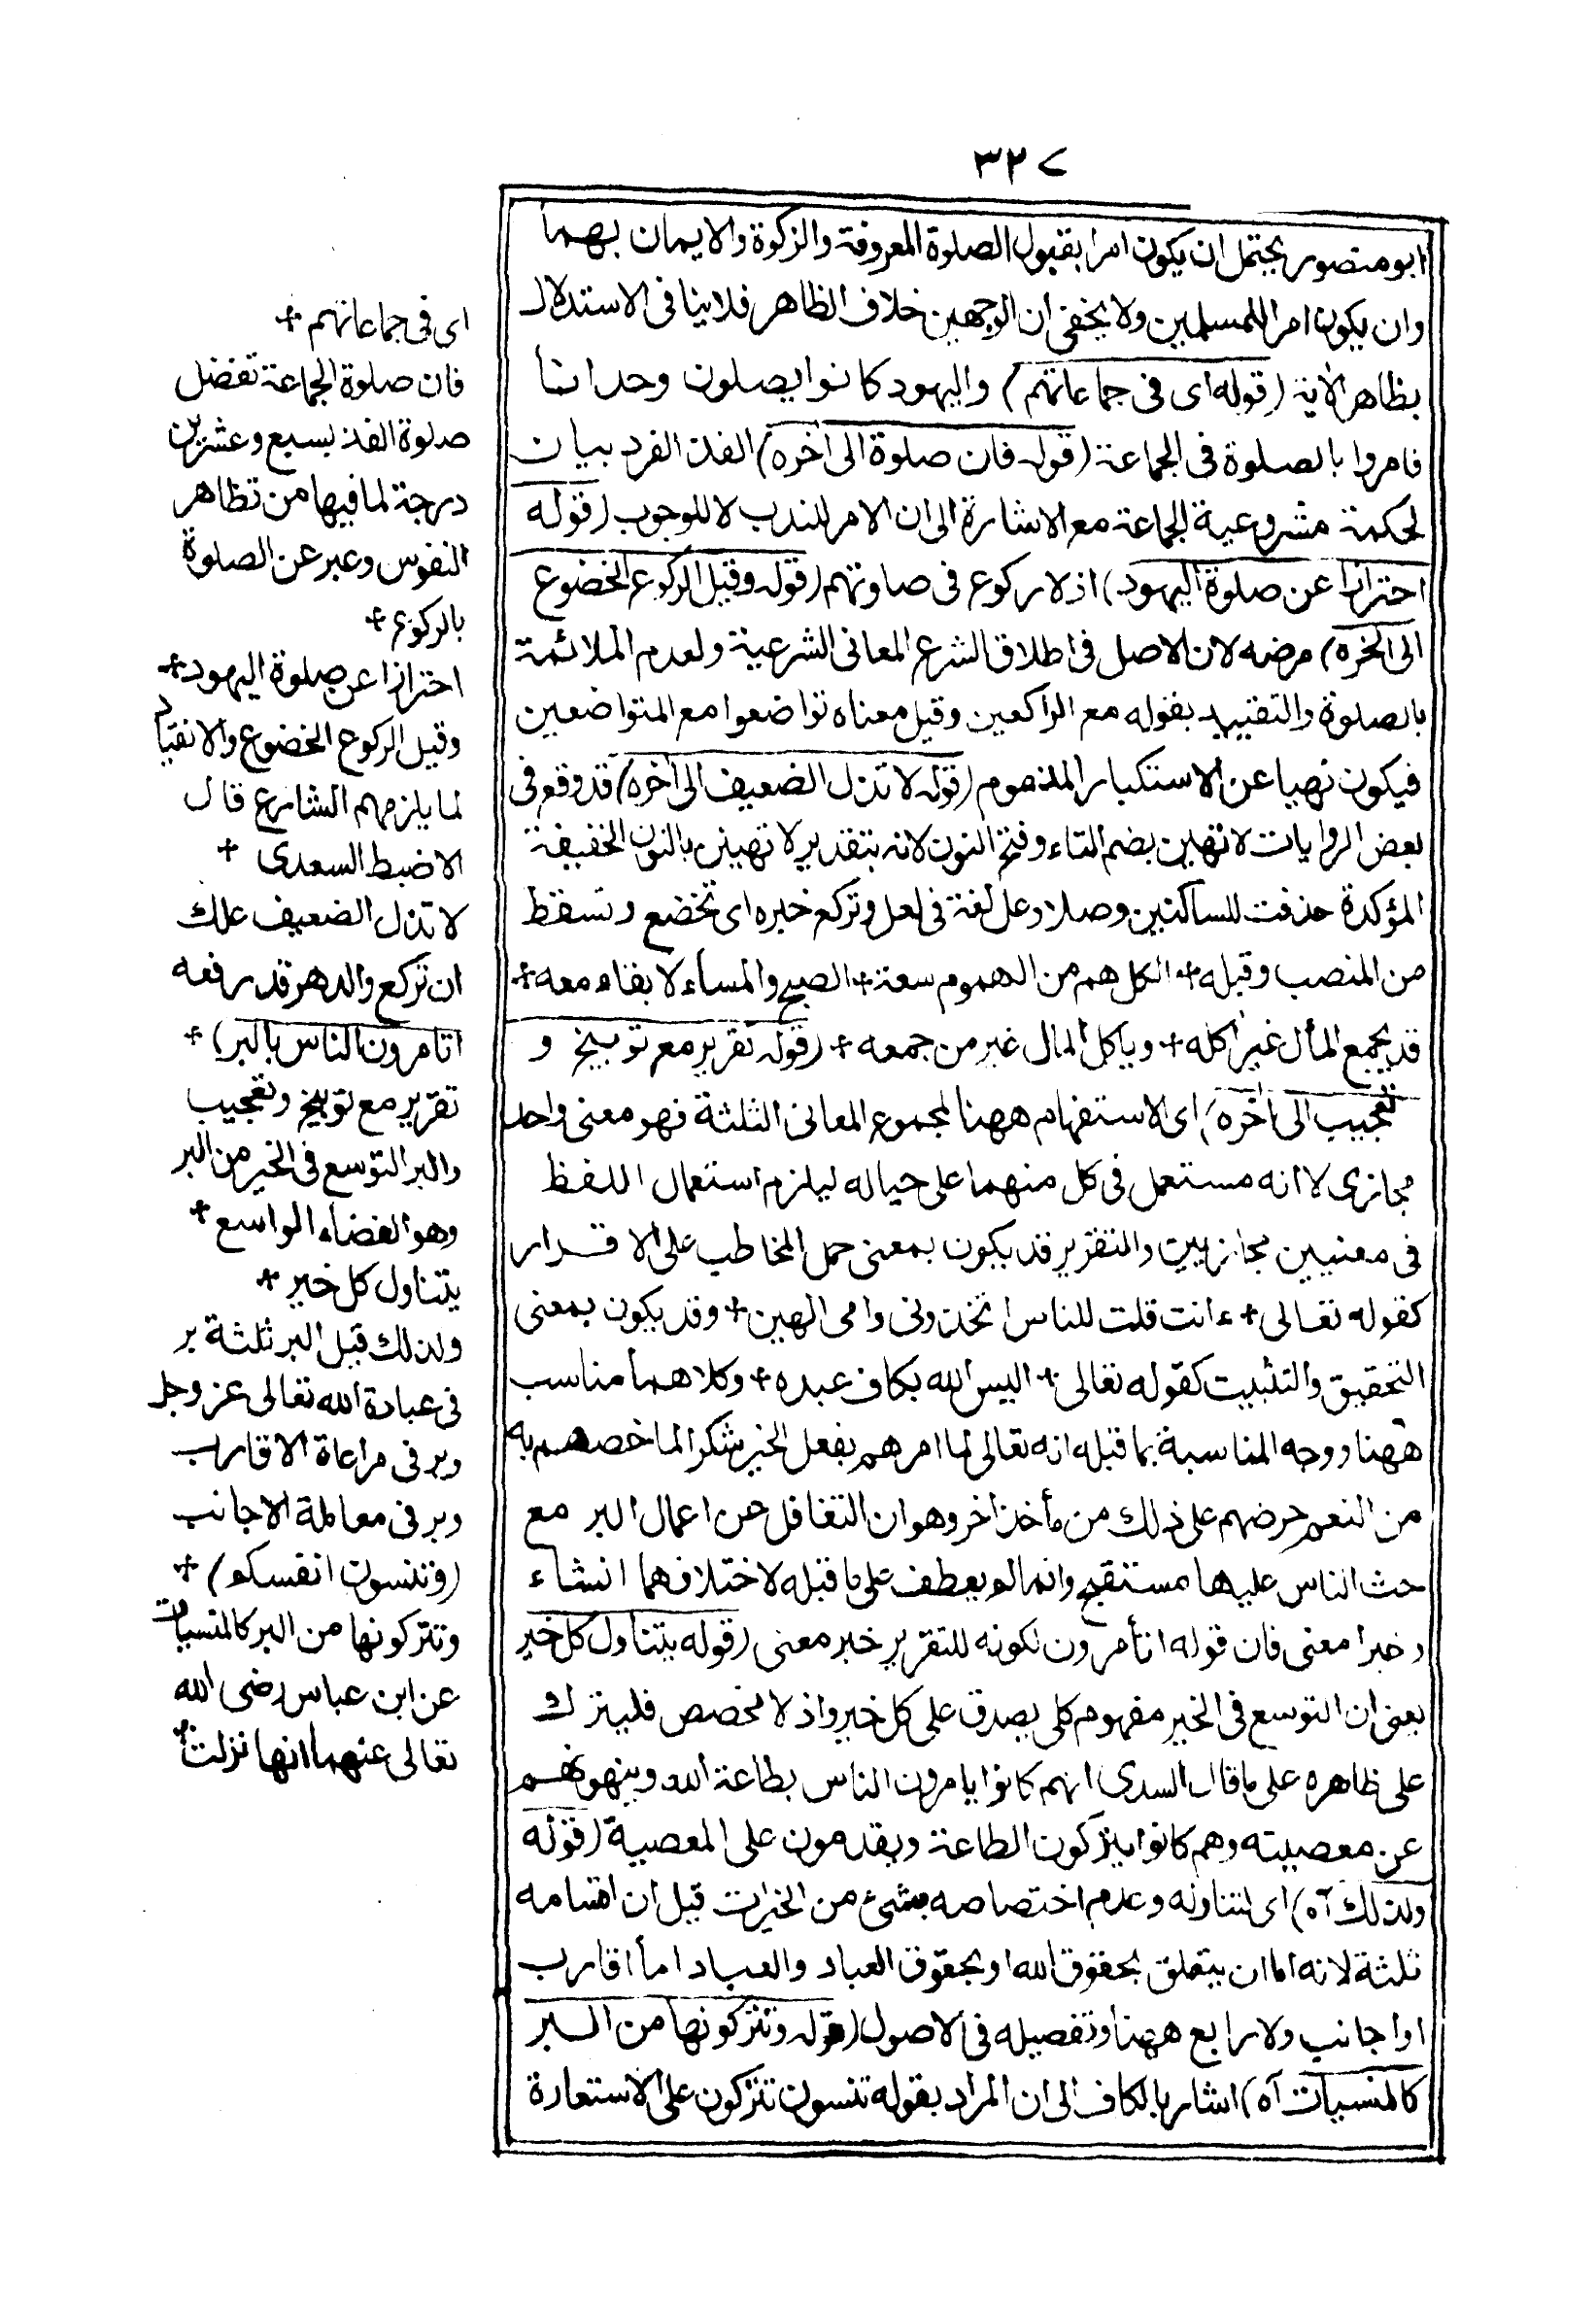 ٣٢٧
ابو منصور يحتمل ان يكون امرا بقبول الصلوة المعروفة والزكوة والايمان بهما
وان يكون امرا للمسلمين ولا يخفى ان الوجهين خلاف الظاهر فلا ينافى الاستدلال
بظاهر الآية (قوله اى فى جماعاتهم) واليهود كانوا يصلون وحدانا
فامروا بالصلوة فى الجماعة (قوله فان صلوة الى آخره) الفذ الفرد بيان
لحكمة مشروعية الجماعة مع الاشارة الى ان الامر للندب لا للوجوب (قوله
احترازا عن صلوة اليهود) اذ لا ركوع فى صلوتهم (قوله وقيل الركوع الخضوع
الى آخره) مرضه لان الاصل فى اطلاق الشرع المعانى الشرعية ولعدم الملائمة
بالصلوة والتقييد بقوله مع الراكعين وقيل معناه تواضعوا مع المتواضعين
فيكون نهيا عن الاستكبار المذموم (قوله لا تذل الضعيف الى آخره) قد وقع فى
بعض الروايات لا تهين بضم التاء وفتح النون لانه بتقدير لا تهينن بالنون الخفيفة
المؤكدة حذفت للساكنين وصلا وعل لغة فى لعل وتركع خبره اى تخضع وتسقط
من المنصب وقبله + الكل هم من الهموم سعة + الصبح والمساء لا بقاء معه +
قد يجمع المال غير آكله + وياكل المال غير من جمعه + (قوله تقرير مع توبيخ و
تعجيب الى آخره) اى الاستفهام ههنا لمجموع المعانى الثلثة فهو معنى واحد
مجازى لا انه مستعمل فى كل منهما على حياله ليلزم استعمال اللفظ
فى معنيين مجازيين والتقرير قد يكون بمعنى حمل المخاطب على الاقرار
كقوله تعالى + ءانت قلت للناس اتخذونى وامى الهين + وقد يكون بمعنى
التحقيق والتثبيت كقوله تعالى + اليس الله بكاف عبده + وكلاهما مناسب
ههنا ووجه المناسبة بما قبله انه تعالى لما امرهم بفعل الخير شكرا لما خصهم به
من النعم حرضهم على ذلك من مأخذ آخر وهو ان التغافل عن اعمال البر مع
حث الناس عليها مستقبح وانما لم يعطف على ما قبله لاختلافهما انشاء
وخبرا معنى فان قوله اتأمرون لكونه للتقرير خبر معنى (قوله يتناول كل خير
يعنى ان التوسع فى الخير مفهوم كلى يصدق على كل خير واذ لا مخصص فليترك
على ظاهره على ما قال السدى انهم كانوا يامرون الناس بطاعة الله وينهونهم
عن معصيته وهم كانوا يتركون الطاعة ويقدمون على المعصية (قوله
ولذلك آه) اى لتناوله وعدم اختصاصه بشئ من الخيرات قيل ان اقسامه
ثلثة لانه اما ان يتعلق بحقوق الله او بحقوق العباد والعباد اما اقارب
او اجانب ولا رابع ههنا وتفصيله فى الاصول (قوله وتتركونها من البر
كالمنسيات آه) اشار بالكاف الى ان المراد بقوله تنسون تتركون على الاستعارة
اى فى جماعاتهم +
فان صلوة الجماعة تفضل
صلوة الفذ بسبع وعشرين
درجة لما فيها من تظاهر
النفوس وعبر عن الصلوة
بالركوع +
احترازا عن صلوة اليهود +
وقيل الركوع الخضوع والانقياد
لما يلزمهم الشارع قال
الاضبط السعدى +
لا تذل الضعيف علك
ان تركع والدهر قد رفعه
اتامرون الناس بالبر) +
تقرير مع توبيخ وتعجيب
والبر التوسع فى الخير من البر
وهو الفضاء الواسع +
يتناول كل خير +
ولذلك قيل البر ثلثة بر
فى عبادة الله تعالى عز وجل
وبر فى مراعاة الاقارب
وبر فى معاملة الاجانب
(وتنسون انفسكم) +
وتتركونها من البر كالمنسيات
عن ابن عباس رضى الله
تعالى عنهما انها نزلت